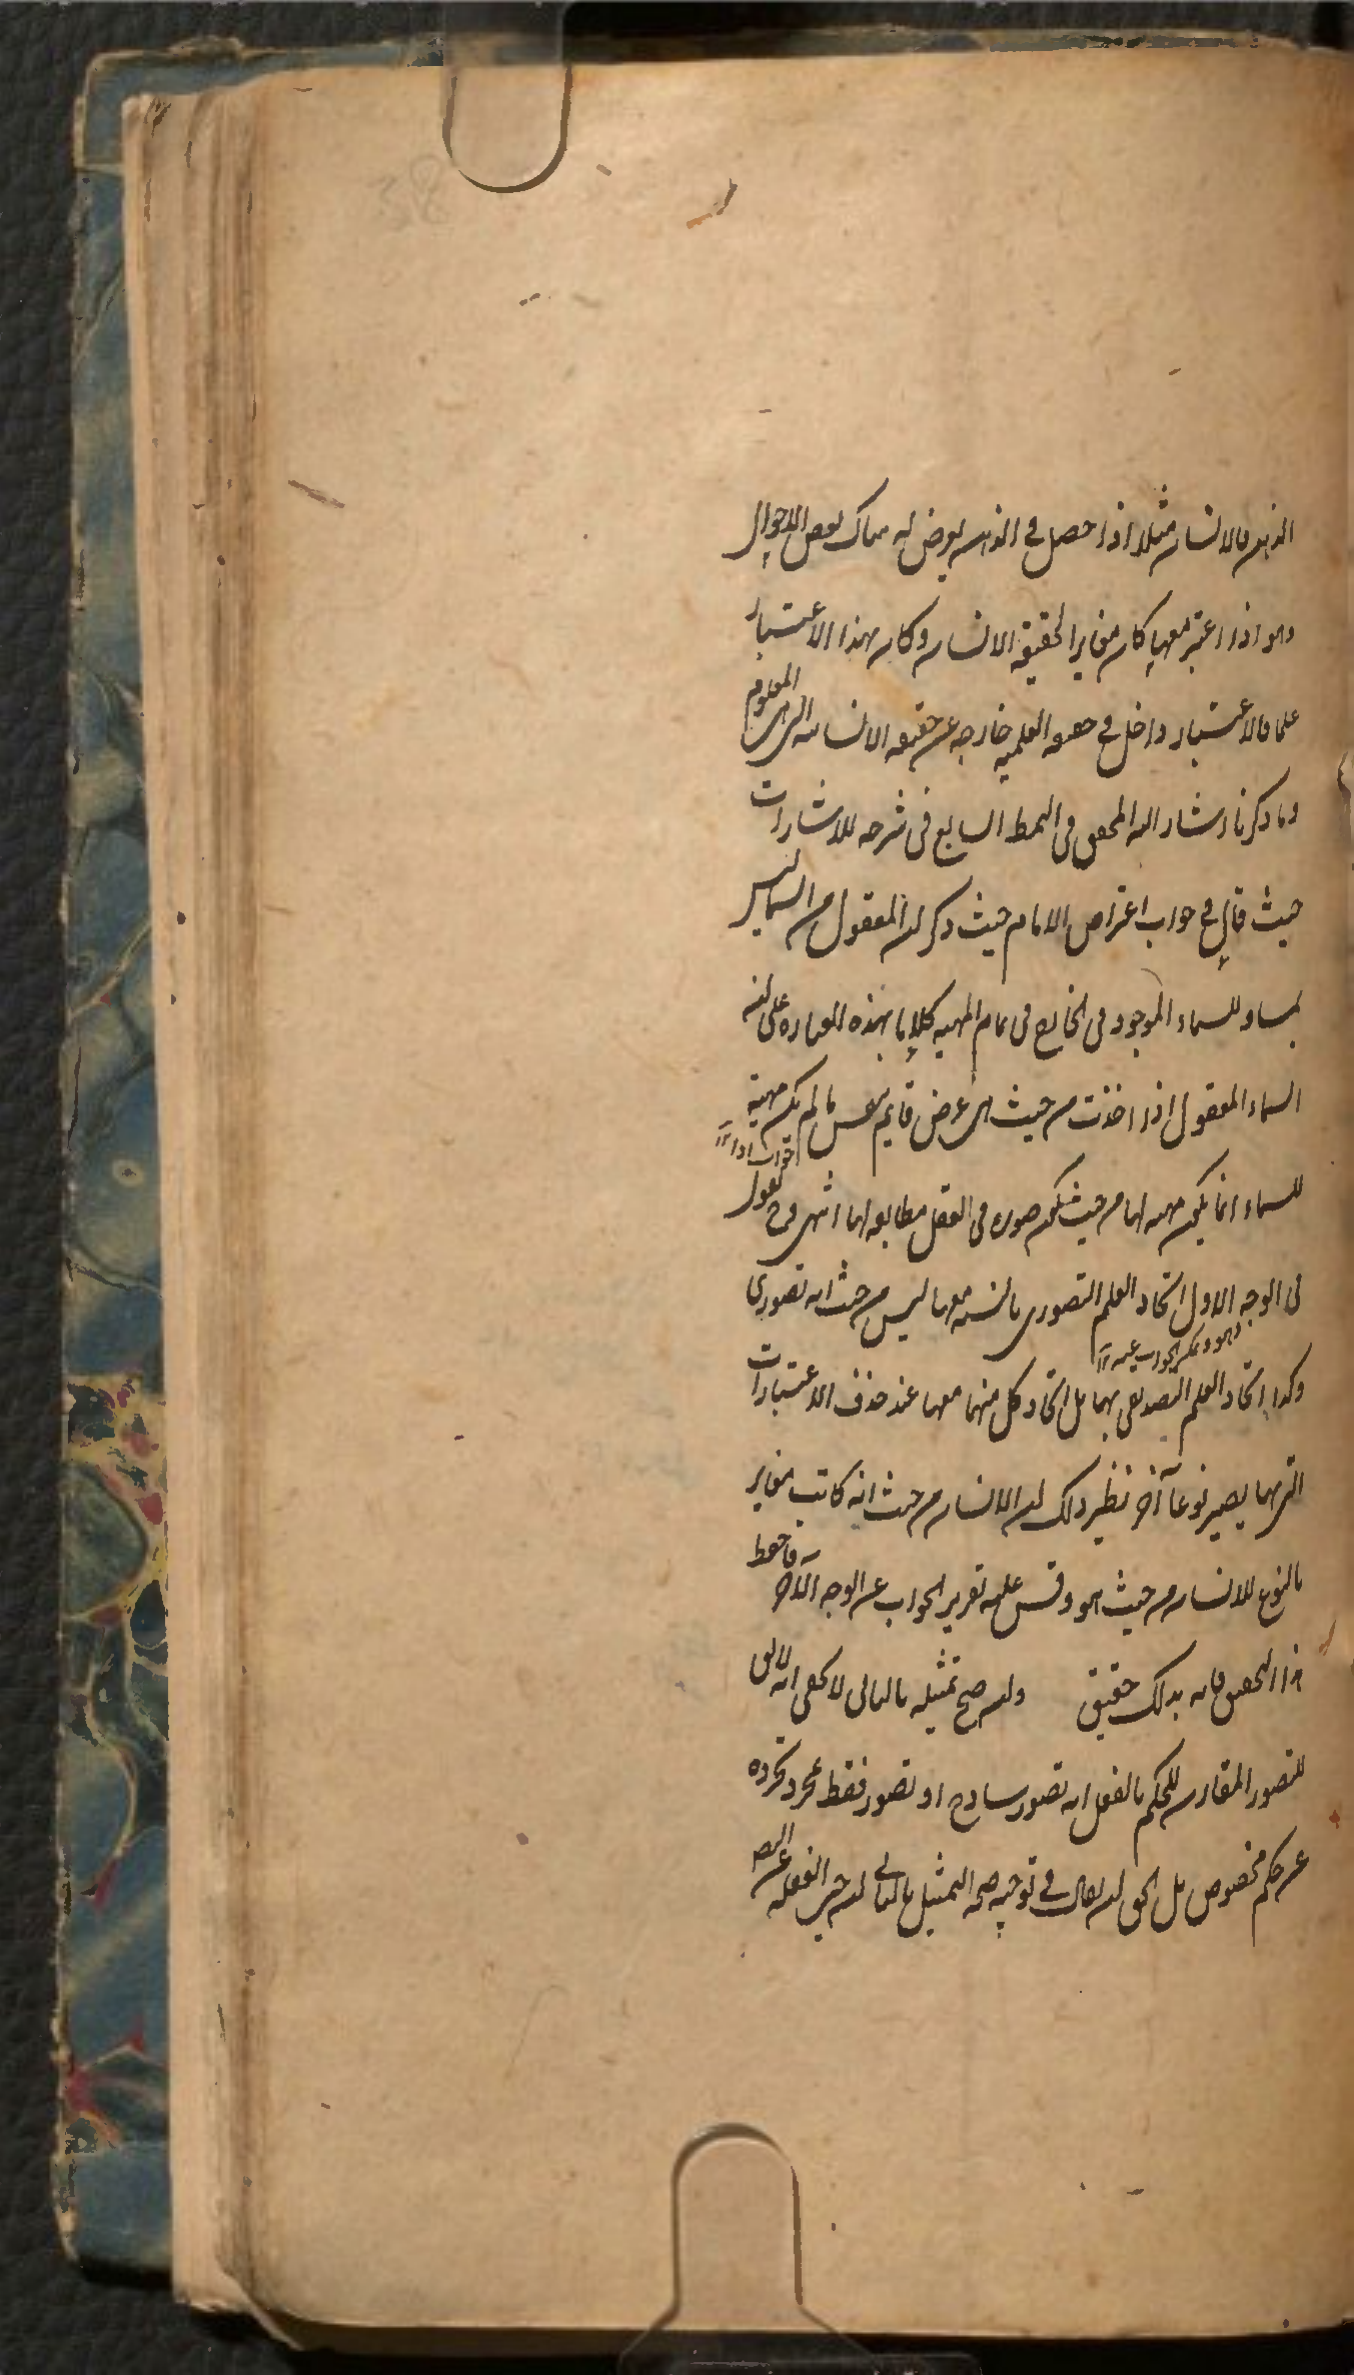 الذهن فالانسان مثلا اذا حصل في الذهن يعرض له هناك بعض الاحوال
وهو اذا اعتبر معها كان مغايرا لحقيقة الانسان وكان بهذا الاعتبار
علما فالاعتبار داخل في حقيقة العلمية خارجه عن حقيقة الانسانية التي هي المعلوم
وما ذكرنا اشار اليه المحقق في النمط السابع في شرحه للاشارات
حيث قال في جواب اعتراض الامام حيث ذكر ان المعقول من السماء ليس
بمساو للسماء الموجود في الخارج في تمام المهية كلاما بهذه العبارة على انه
السماء المعقول اذا اخذت من حيث هي عرض قايم بنفس ما لم يكن مهية
للسماء انما يكون مهية لها من حيث يكون صورة في العقل مطابقة لها انتهى فح نقول
في الوجه الاول اتحاد العلم التصوري بالنسبة معها ليس من حيث انه تصوري
وكذا اتحاد العلم التصديقي بها بل اتحاد كل منهما معها عند حذف الاعتبارات
التي بها يصير نوعا آخر نظير ذلك ان الانسان من حيث انه كاتب مغاير
بالنوع للانسان من حيث هو وقس عليه تقرير الجواب عن الوجه الآخر فاحفظ
هذا التحقيق فانه بذلك حقيق وان صح تمثيله بالتالي لا يخفى انه لا يق
للتصور المقارن للحكم بالفعل انه تصور ساذج او تصور فقط بمجرد تجرده
عن حكم مخصوص بل الحق ان يقال في توجيه صحة التمثيل بالتالي ان حين الغفلة عن